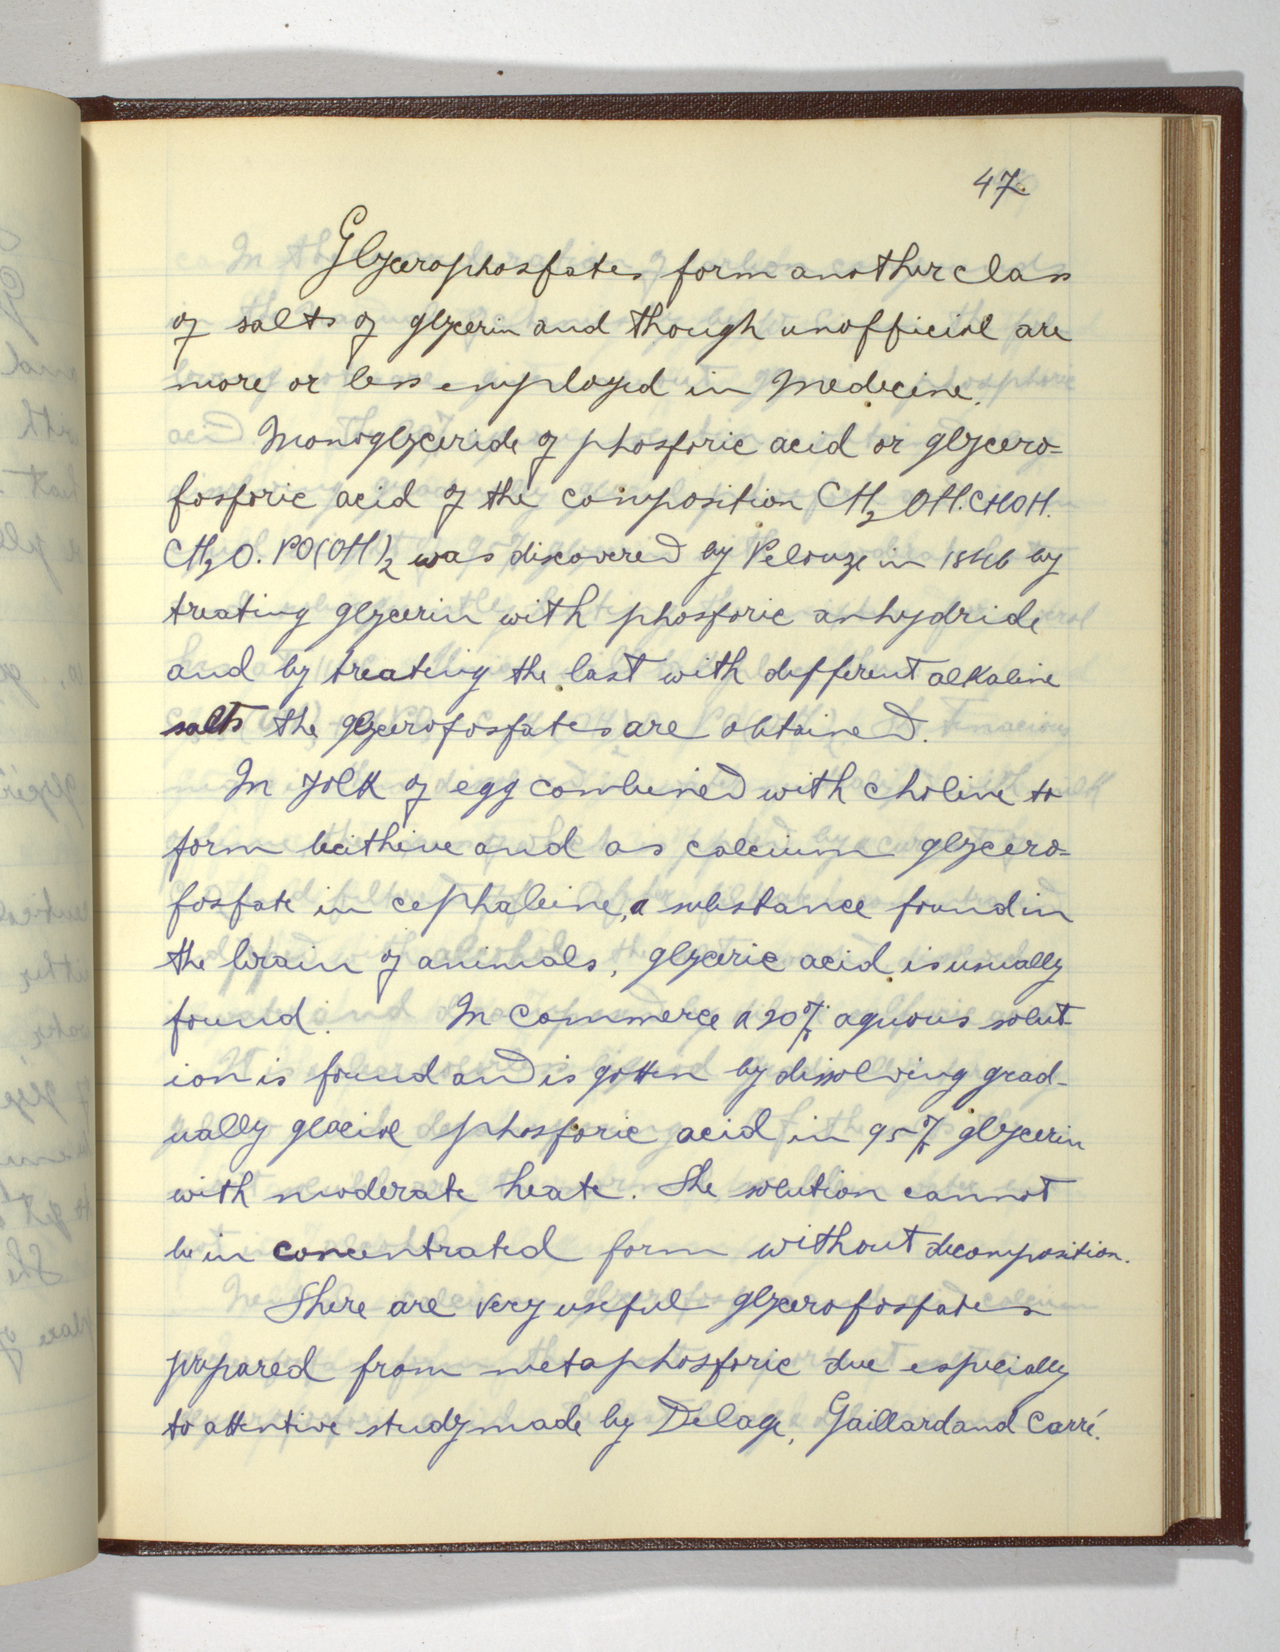 47.
Glycerophosfates form another class
of salts of glycerin and though unofficial are
more or less employed in Medecine.
Monoglyceride of phosforic acid or glycero=
fosforic acid of the composition CH2 OH.CHOH.
CH2O.PO(OH)2 was discovered by Pelouze in 1846 by
treating glycerin with phosforic anhydride
and by treating the last with different alkaline
salts the glycerofosfates are obtained.
In yolk of egg combined with choline to
form lecithine and as calcium glycero=
fosfate in cephaleine, a substance found in
the brain of animals, glyceric acid is usually
found. In Commerce a 20% aquous solut-
ion is found and is gotten by dissolving grad-
ually glacial phosforic acid in 95% glycerin
with moderate heate. The solution cannot
be in concentrated form without decomposition.
There are very useful glycerofosfates
prepared from metaphosforic due especially
to attentive study made by Delage, Gaillard and Carré.